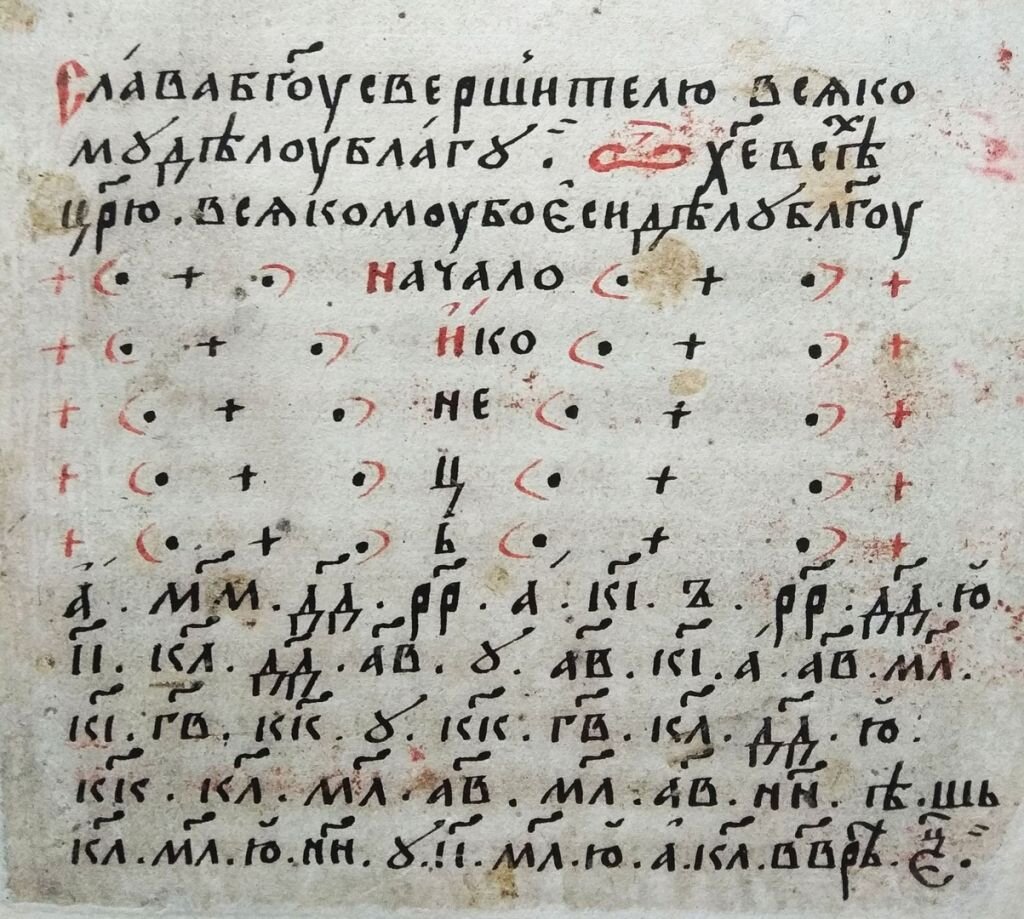 Сла́ва бг҃оу сверши́телю всѧко
мꙋ дѣлоу бла́гꙋ . х҃е всѣⷯ
цр҃ю . всѧкомоу бо є҆си дѣлꙋ бл҃гоу
+ ( • + • ) начало ( • + • ) +
+ ( • + • ) и҆ ко ( • + • ) +
+ ( • + • ) не ( • + • ) +
+ ( • + • ) ц ( • + • ) +
+ ( • + • ) ь ( • + • ) +
а҆ . мм҃ . дд҃ . рр҃ . а҆ . кі҃ . ъ . рр҃ . дд҃ . ю
іі҃ . кл҃ . дд҃ . ав҃ . ꙋ . ав҃ . кі҃ . а҆ . ав҃ . мл҃ .
кі҃ . гв҃ . кк҃ . ꙋ . кк҃ . гв҃ . кл҃ . дд҃ . ю :
кк҃ . кл҃ . мл҃ . ав҃ . мл҃ . ав҃ . нн҃ . ѣ . шь
кл҃ . мл҃ . ю . нн҃ . ꙋ . іі . мл҃ . ю . а҆ . кл҃ . вв҃